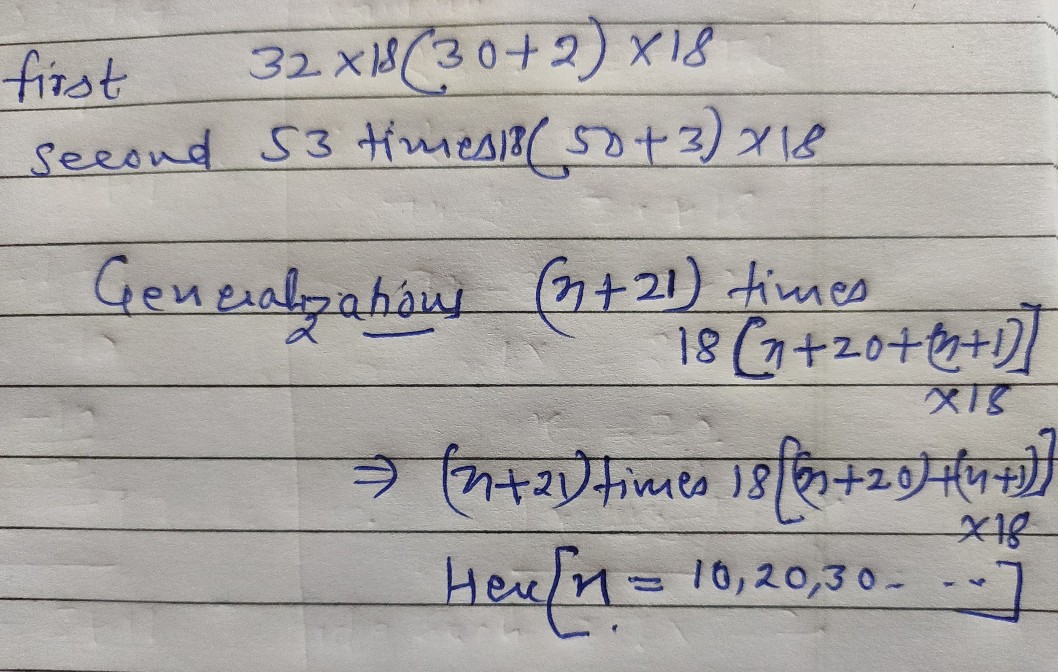 first 32 x18(30+2) x18
second 53 times18(50+3) x18
Generalizations (n+21) times
18[n+20+(n+1)]
x18
⇒ (n+21) times 18[(n+20)+(n+1)]
x18
Here [n = 10,20,30- ---]